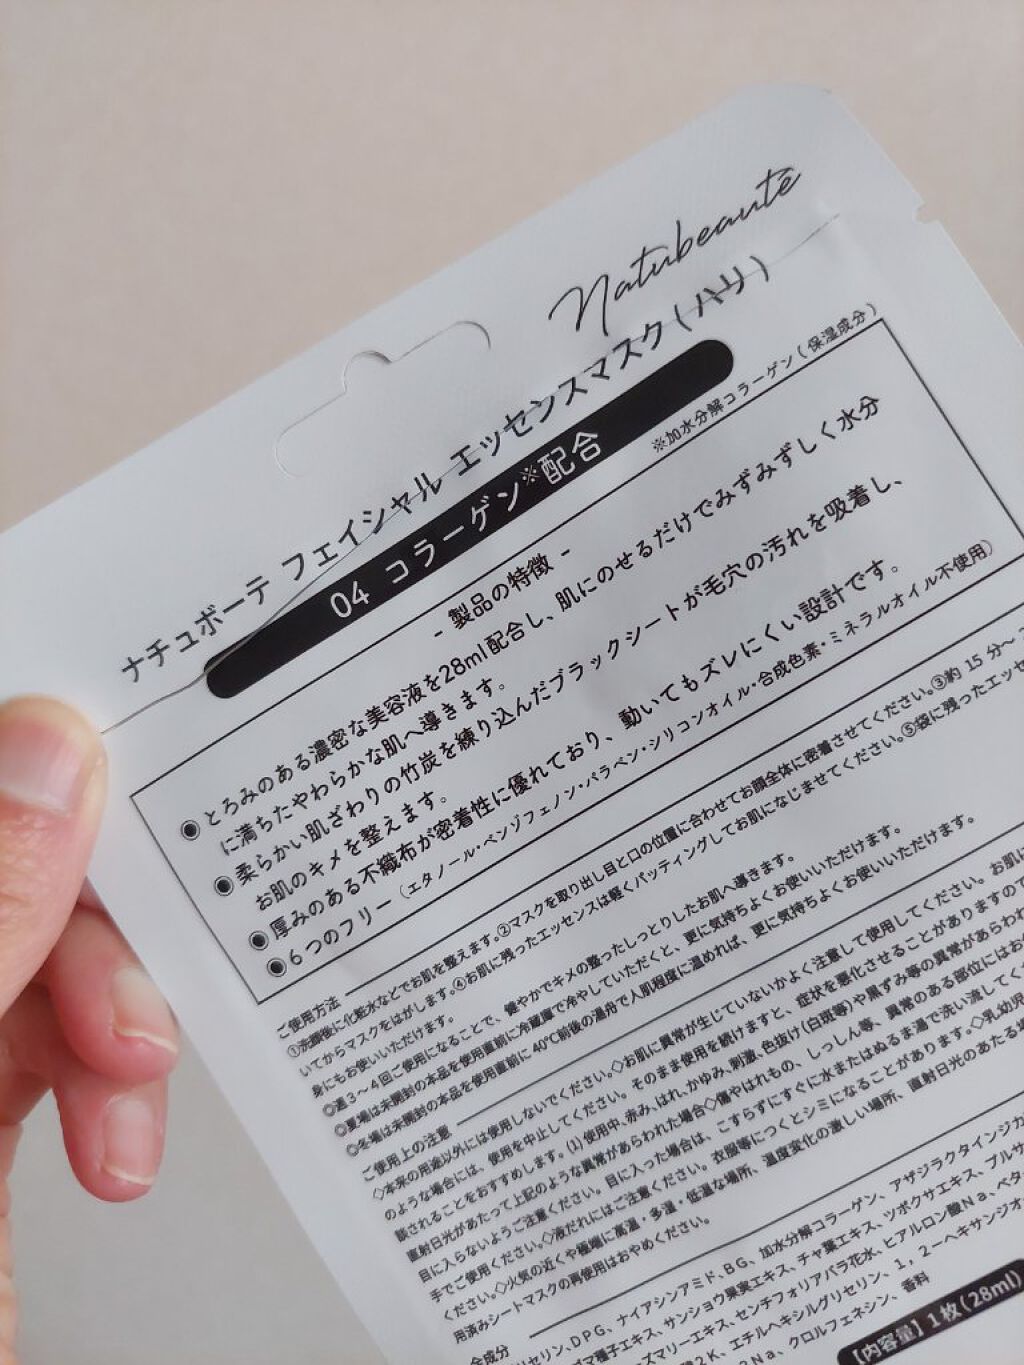 Natubeauté
ナチュボーテ フェイシャル エッセンスマスク(ハリ)
04 コラーゲン※配合
※加水分解コラーゲン(保湿成分)
- 製品の特徴 -
◉とろみのある濃密な美容液を28ml配合し、肌にのせるだけでみずみずしく水分
に満ちたやわらかな肌へ導きます。
◉柔らかい肌ざわりの竹炭を練り込んだブラックシートが毛穴の汚れを吸着し、
お肌のキメを整えます。
◉厚みのある不織布が密着性に優れており、動いてもズレにくい設計です。
◉6つのフリー(エタノール・ベンゾフェノン・パラベン・シリコンオイル・合成色素・ミネラルオイル不使用)
ご使用方法
①洗顔後に化粧水などでお肌を整えます。②マスクを取り出し目と口の位置に合わせてお顔全体に密着させてください。③約 15 分〜
いてからマスクをはがします。④お肌に残ったエッセンスは軽くパッティングしてお肌になじませてください。⑤袋に残ったエッセ
身にもお使いいただけます。
◎週3〜4回ご使用になることで、健やかでキメの整ったしっとりしたお肌へ導きます。
◎夏場は未開封の本品を使用直前に冷蔵庫で冷やしていただくと、更に気持ちよくお使いいただけます。
◎冬場は未開封の本品を使用直前に 40℃前後の湯舟で人肌程度に温めれば、更に気持ちよくお使いいただけます。
ご使用上の注意
◇本来の用途以外には使用しないでください。◇お肌に異常が生じていないかよく注意して使用してください。お肌に
のような場合には、使用を中止してください。そのまま使用を続けますと、症状を悪化させることがありますので
談されることをおすすめします。(1)使用中、赤み、はれ、かゆみ、刺激、色抜け(白斑等)や黒ずみ等の異常があらわれ
直射日光があたって上記のような異常があらわれた場合◇傷やはれもの、しっしん等、異常のある部位にはお
目に入らないようご注意ください。目に入った場合は、こすらずにすぐに水またはぬるま湯で洗い流してく
手でご使用ください。◇液だれにはご注意ください。衣服等につくとシミになることがあります。◇乳幼児
ください。◇火気の近くや極端に高温・多湿・低温な場所、温度変化の激しい場所、直射日光のあたる場
用済みシートマスクの再使用はおやめください。
全成分
リセリン、DPG、ナイアシンアミド、BG、加水分解コラーゲン、アザジラクタインジカ
ゴマ種子エキス、サンショウ果実エキス、チャ葉エキス、ツボクサエキス、プルサ
ズマリーエキス、センチフォリアバラ花水、ヒアルロン酸Na、ベタ
酸2K、エチルヘキシルグリセリン、1,2-ヘキサンジオ
2Na、クロルフェネシン、香料
【内容量】1枚(28ml)